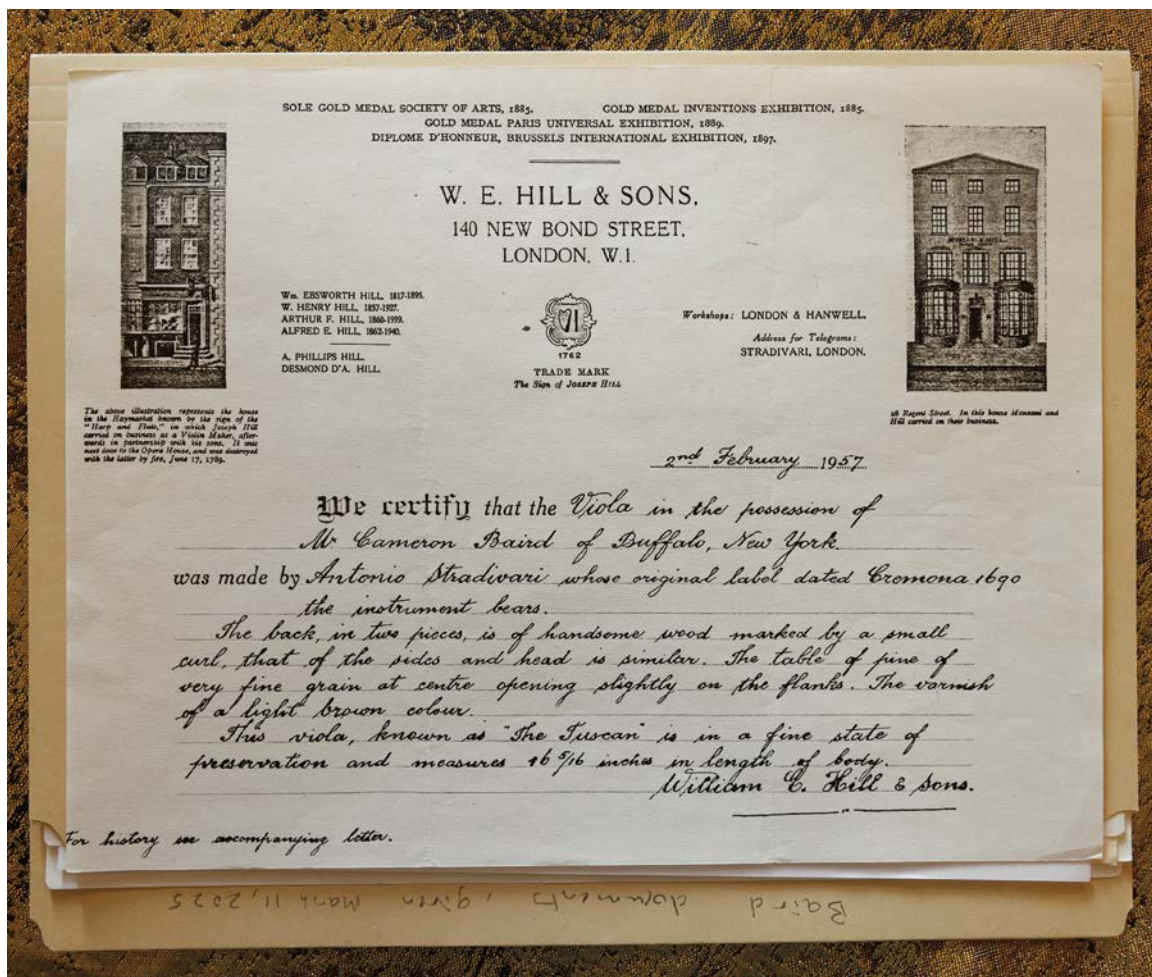 SOLE GOLD MEDAL SOCIETY OF ARTS, 1885. GOLD MEDAL INVENTIONS EXHIBITION, 1885.
GOLD MEDAL PARIS UNIVERSAL EXHIBITION, 1889.
DIPLOME D'HONNEUR, BRUSSELS INTERNATIONAL EXHIBITION, 1897.
W. E. HILL & SONS,
140 NEW BOND STREET,
LONDON, W.1.
Wm. EBSWORTH HILL, 1817-1895.
W. HENRY HILL, 1857-1927.
ARTHUR F. HILL, 1860-1939.
ALFRED E. HILL, 1862-1940.
A. PHILLIPS HILL.
DESMOND D'A. HILL.
1762
TRADE MARK
The Sign of JOSEPH HILL
Workshops: LONDON & HANWELL.
Address for Telegrams:
STRADIVARI, LONDON.
The above illustration represents the house
in the Haymarket known by the sign of the
"Harp and Flute," in which Joseph Hill
carried on business as a Violin Maker, after-
wards in partnership with his sons. It was
next door to the Opera House, and was destroyed
with the latter by fire, June 17, 1789.
MONZANI & HILL
28 Regent Street. In this house Monzani and
Hill carried on their business.
2nd February 1957
We certify that the Viola in the possession of
Mr Cameron Baird of Buffalo, New York.
was made by Antonio Stradivari whose original label dated Cremona 1690
the instrument bears.
The back, in two pieces, is of handsome wood marked by a small
curl, that of the sides and head is similar. The table of pine of
very fine grain at centre opening slightly on the flanks. The varnish
of a light brown colour.
This viola, known as "The Tuscan" is in a fine state of
preservation and measures 16 5/16 inches in length of body.
William E. Hill & Sons.
For history see accompanying letter.
Baird documents, given March 11, 2025